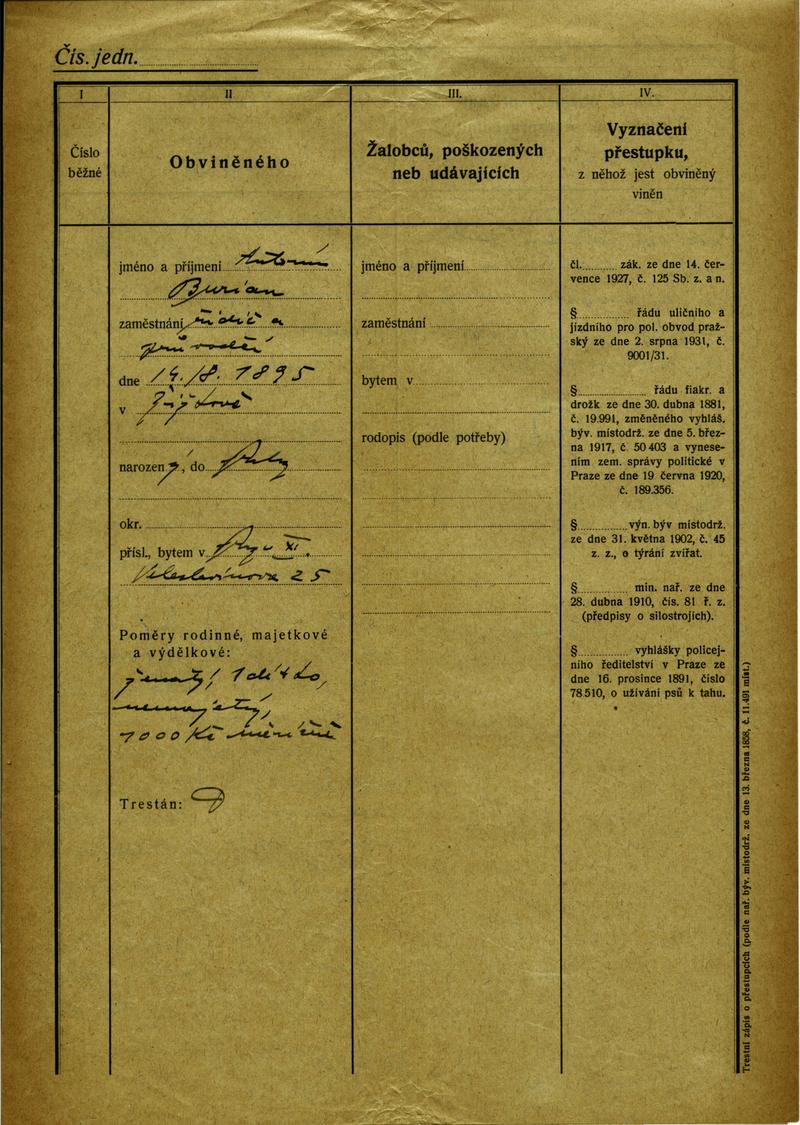 Čís. jedn.
I
II
III.
IV.
Číslo
běžné
Obviněného
Žalobců, poškozených
neb udávajících
Vyznačení
přestupku,
z něhož jest obviněný
viněn
jméno a příjmení Antonín
Burian
zaměstnání
dne 14./8. 1895
v
narozen, do
okr.
přísl., bytem v XI.
25
Poměry rodinné, majetkové
a výdělkové:
ženatý, 1
1000 Kč
Trestán:
jméno a příjmení
zaměstnání
bytem v
rodopis (podle potřeby)
čl. zák. ze dne 14. čer-
vence 1927, č. 125 Sb. z. a n.
§ řádu uličního a
jízdního pro pol. obvod praž-
ský ze dne 2. srpna 1931, č.
9001/31.
§ řádu fiakr. a
drožk ze dne 30. dubna 1881,
č. 19.991, změněného vyhláš.
býv. místodrž. ze dne 5. břez-
na 1917, č. 50 403 a vynese-
ním zem. správy politické v
Praze ze dne 19 června 1920,
č. 189.356.
§ výn. býv místodrž.
ze dne 31. května 1902, č. 45
z. z., o týrání zvířat.
§ min. nař. ze dne
28. dubna 1910, čís. 81 ř. z.
(předpisy o silostrojích).
§ vyhlášky policej-
ního ředitelství v Praze ze
dne 16. prosince 1891, číslo
78510, o užívání psů k tahu.
Trestní zápis o přestupcích (podle nař. býv. místodrž. ze dne 13. března 1858, č. 11.491 míst.)